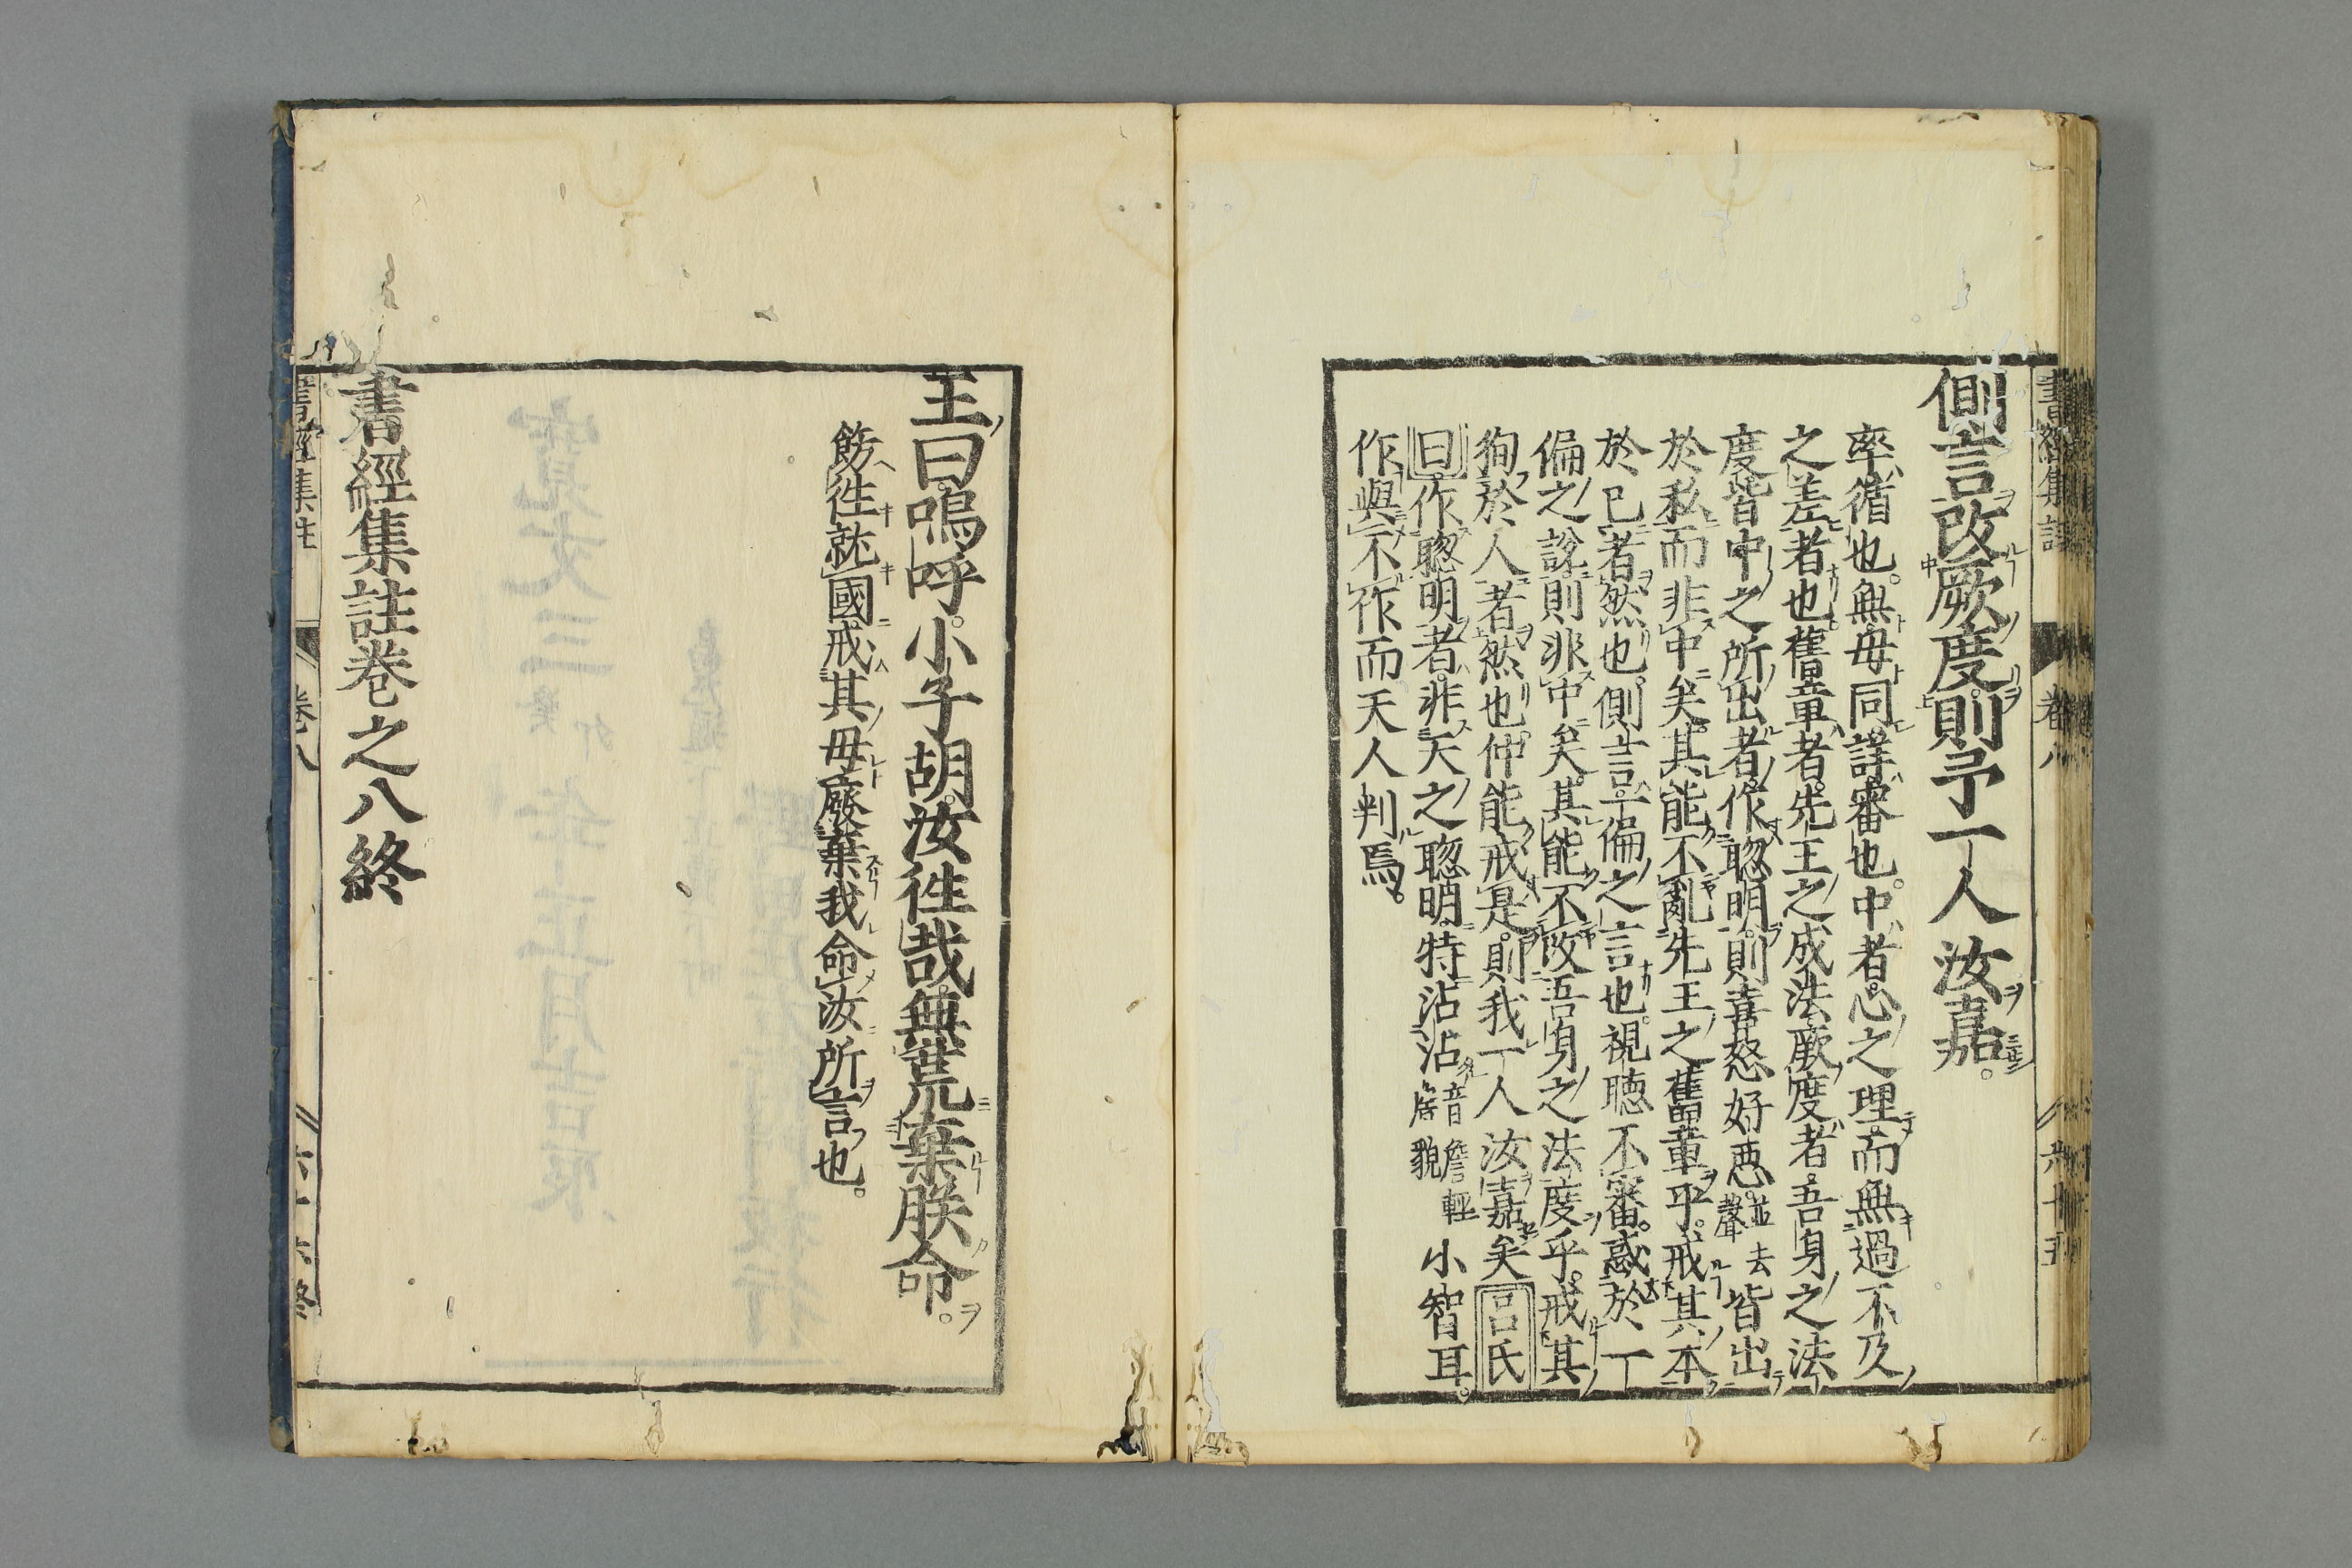 側言改厥度則予一人汝嘉。
率循也。無毋同。詳審也。中者心之理而無過不及
之差者也。舊章者先王之成法厥度者吾身之法
度皆中之所出者。作聰明則喜怒好惡並去聲皆出
於私而非中矣。其能不亂先王之舊章乎。戒其本
於己者然也。側言一偏之言也。視聽不審。惑於一
偏之說則非中矣。其能不改吾身之法度乎。戒其
徇於人者然也。仲能戒是。則我一人汝嘉矣呂氏
曰。作聰明者。非天之聰明。特沾沾音詹輕㞐貌小智耳。
作與不作而天人判焉。
書經集註 卷八 六十五
王曰。嗚呼。小子胡。汝徃哉無荒棄朕命。
飭徃就國。戒其毋廢棄我命汝所言也。
書經集註卷之八終
書經集註 卷八 六十六終